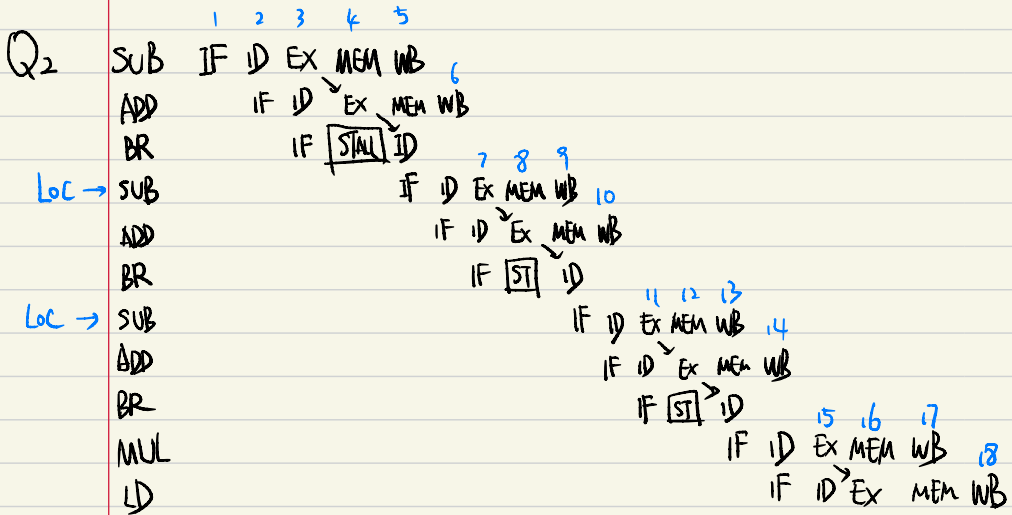 1 2 3 4 5
Q2 SUB IF ID EX MEM WB
6
ADD IF ID EX MEM WB
BR IF STALL ID
7 8 9
LOC → SUB IF ID EX MEM WB 10
ADD IF ID EX MEM WB
BR IF ST ID
11 12 13
LOC → SUB IF ID EX MEM WB 14
ADD IF ID EX MEM WB
BR IF ST ID
15 16 17
MUL IF ID EX MEM WB 18
LD IF ID EX MEM WB